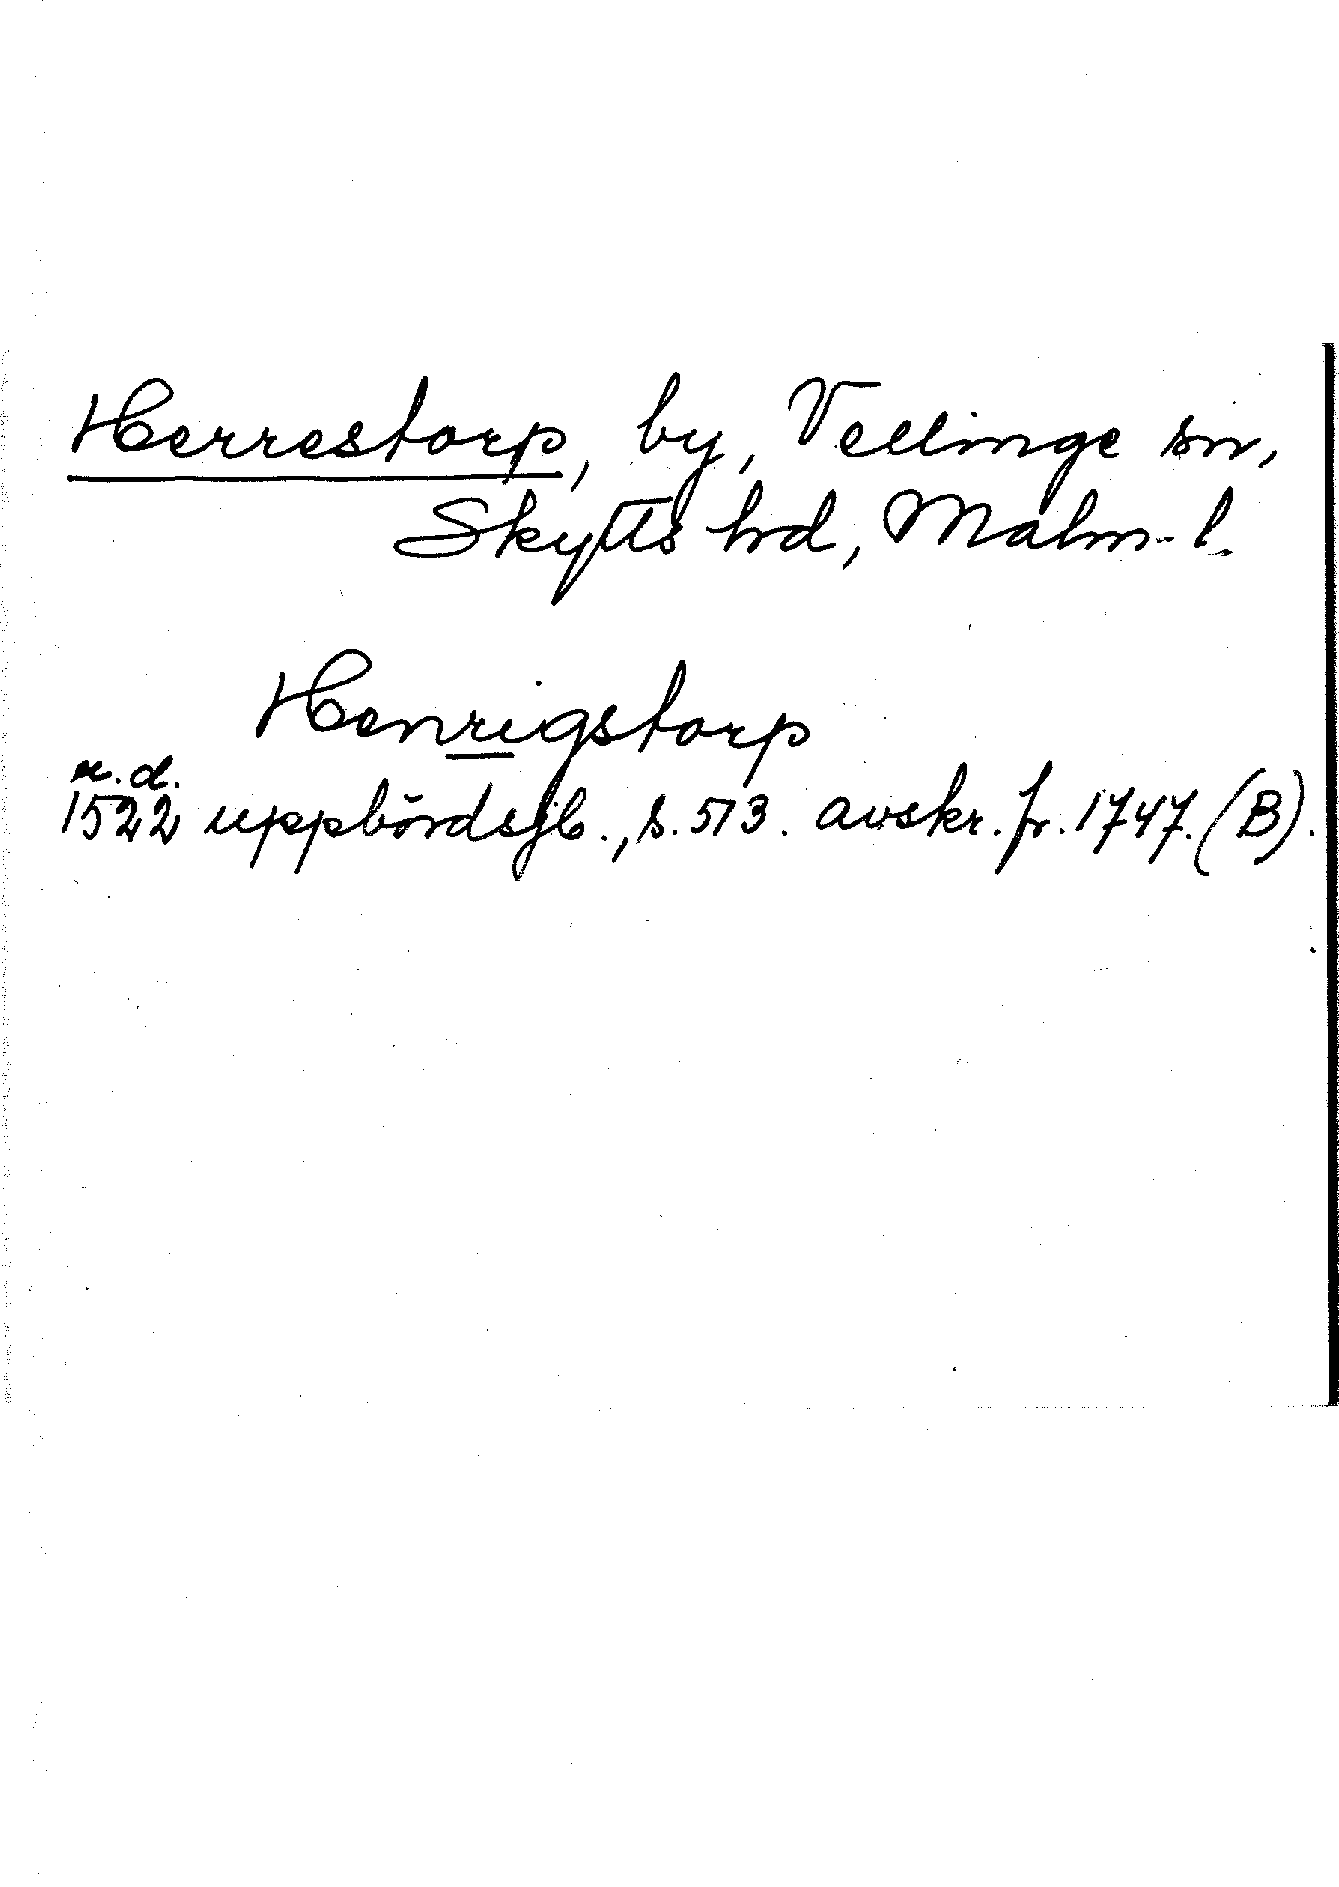 Herrestorp, by, Vellinge sn,
Skytts hd, Malm. l.
Henrigstorp
n.d.
1522 uppbördsjb., s. 513. avskr. fr. 1747. (B).